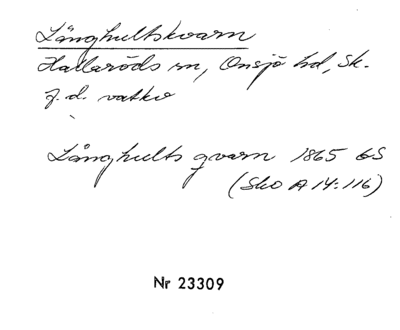 Långhultskvarn
Hallaröds sn, Onsjö hd, Sk.
f.d. vatkv
Långhults qvarn 1865 GS
(Sko A 14:116)
Nr 23309